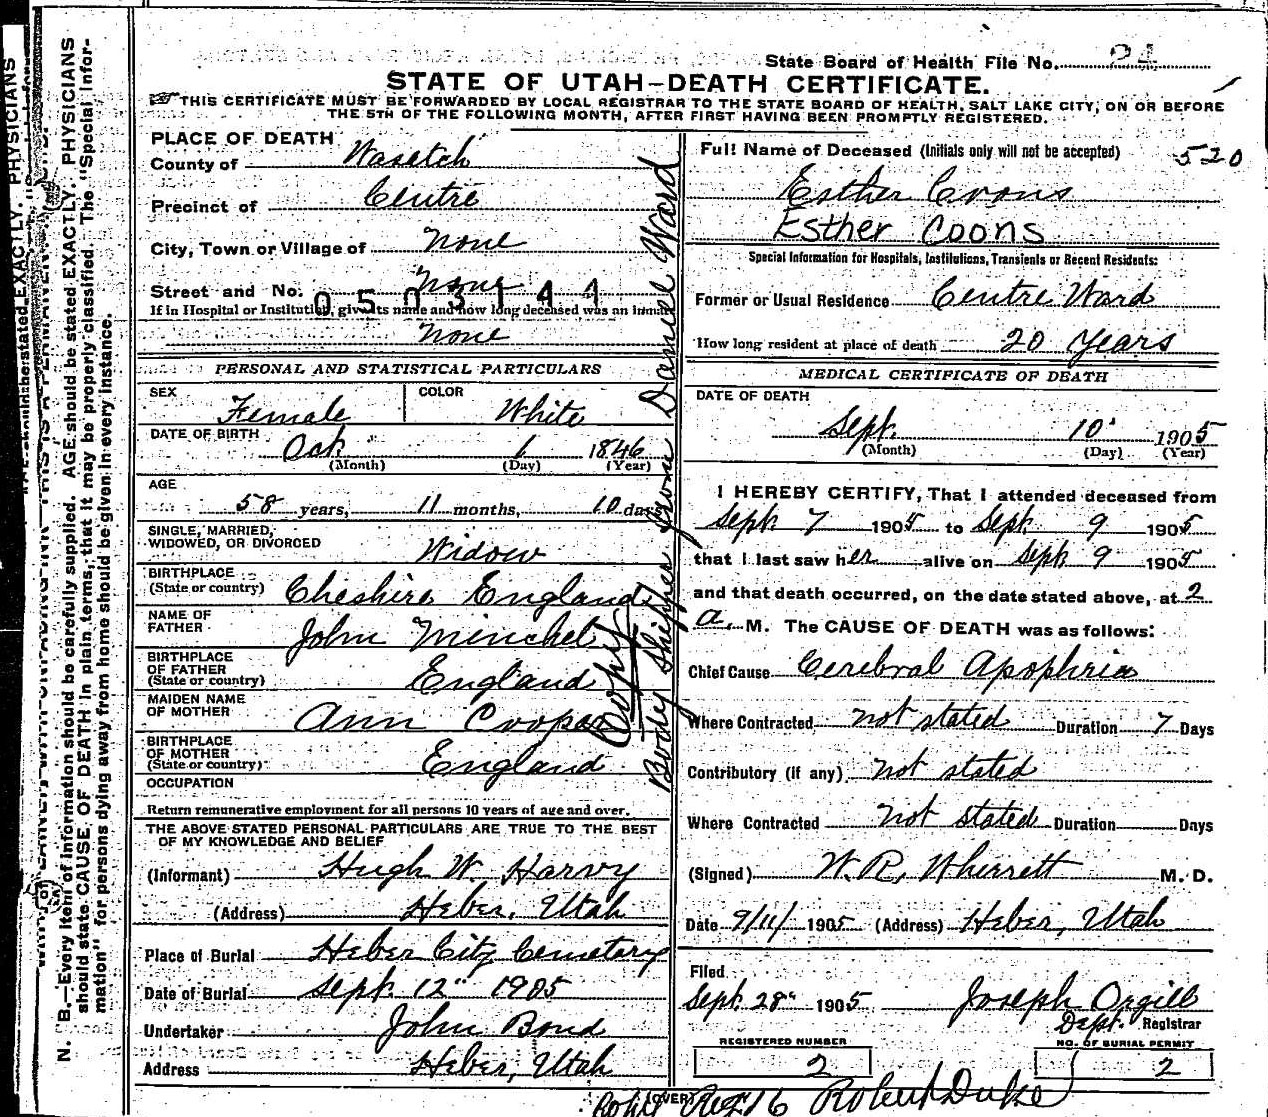 State Board of Health File No. 24
STATE OF UTAH-DEATH CERTIFICATE.
THIS CERTIFICATE MUST BE FORWARDED BY LOCAL REGISTRAR TO THE STATE BOARD OF HEALTH, SALT LAKE CITY, ON OR BEFORE
THE 5TH OF THE FOLLOWING MONTH, AFTER FIRST HAVING BEEN PROMPTLY REGISTERED.
PLACE OF DEATH
County of Wasatch
Precinct of Centre
City, Town or Village of None
Street and No. None
0503144
If in Hospital or Institution, give its name and how long deceased was an inmate
None
PERSONAL AND STATISTICAL PARTICULARS
SEX Female COLOR White
DATE OF BIRTH Oct. 1 1846
(Month) (Day) (Year)
AGE
58 years, 11 months, 10 days
SINGLE, MARRIED,
WIDOWED, OR DIVORCED Widow
BIRTHPLACE
(State or country) Cheshire England
NAME OF
FATHER John Minchel
BIRTHPLACE
OF FATHER
(State or country) England
MAIDEN NAME
OF MOTHER Ann Cooper
BIRTHPLACE
OF MOTHER
(State or country) England
OCCUPATION
Return remunerative employment for all persons 10 years of age and over.
THE ABOVE STATED PERSONAL PARTICULARS ARE TRUE TO THE BEST
OF MY KNOWLEDGE AND BELIEF
(Informant) Hugh W. Harvy
(Address) Heber, Utah
Place of Burial Heber City Cemetary
Date of Burial Sept. 12" 1905
Undertaker John Bond
Address Heber, Utah
Copy
Body Shipped from Daniel Ward
Full Name of Deceased (Initials only will not be accepted) 520
Esther Coons
Esther Coons
Special Information for Hospitals, Institutions, Transients or Recent Residents:
Former or Usual Residence Centre Ward
How long resident at place of death 20 Years
MEDICAL CERTIFICATE OF DEATH
DATE OF DEATH
Sept. 10" 1905
(Month) (Day) (Year)
I HEREBY CERTIFY, That I attended deceased from
Sept. 7 1905 to Sept. 9 1905
that I last saw her alive on Sept. 9 1905
and that death occurred, on the date stated above, at 2
a. M. The CAUSE OF DEATH was as follows:
Chief Cause Cerebral Apophria
Where Contracted not stated Duration 7 Days
Contributory (if any) not stated
Where Contracted not stated Duration Days
(Signed) W. R. Wherrett M. D.
Date 9/11/ 1905 (Address) Heber, Utah
Filed
Sept. 28" 1905 Joseph Orgill
Dept. Registrar
REGISTERED NUMBER 2
NO. OF BURIAL PERMIT 2
(OVER)
Robert Duke
N. B.—Every item of information should be carefully supplied. AGE should be stated EXACTLY. PHYSICIANS
should state CAUSE OF DEATH in plain terms, that it may be properly classified. The "Special Infor-
mation" for persons dying away from home should be given in every instance.